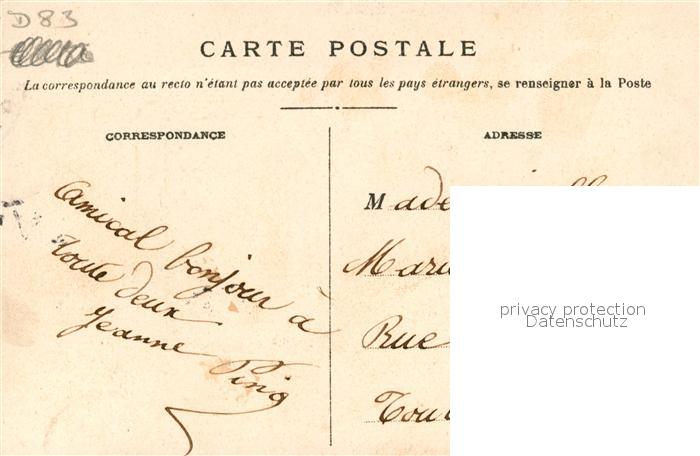 D 83
CARTE POSTALE
La correspondance au recto n'étant pas acceptée par tous les pays étrangers, se renseigner à la Poste
CORRESPONDANCE
Amical bonjour à
toute deux
Jeanne
ADRESSE
Made
Mari
Rue
Tou
privacy protection
Datenschutz